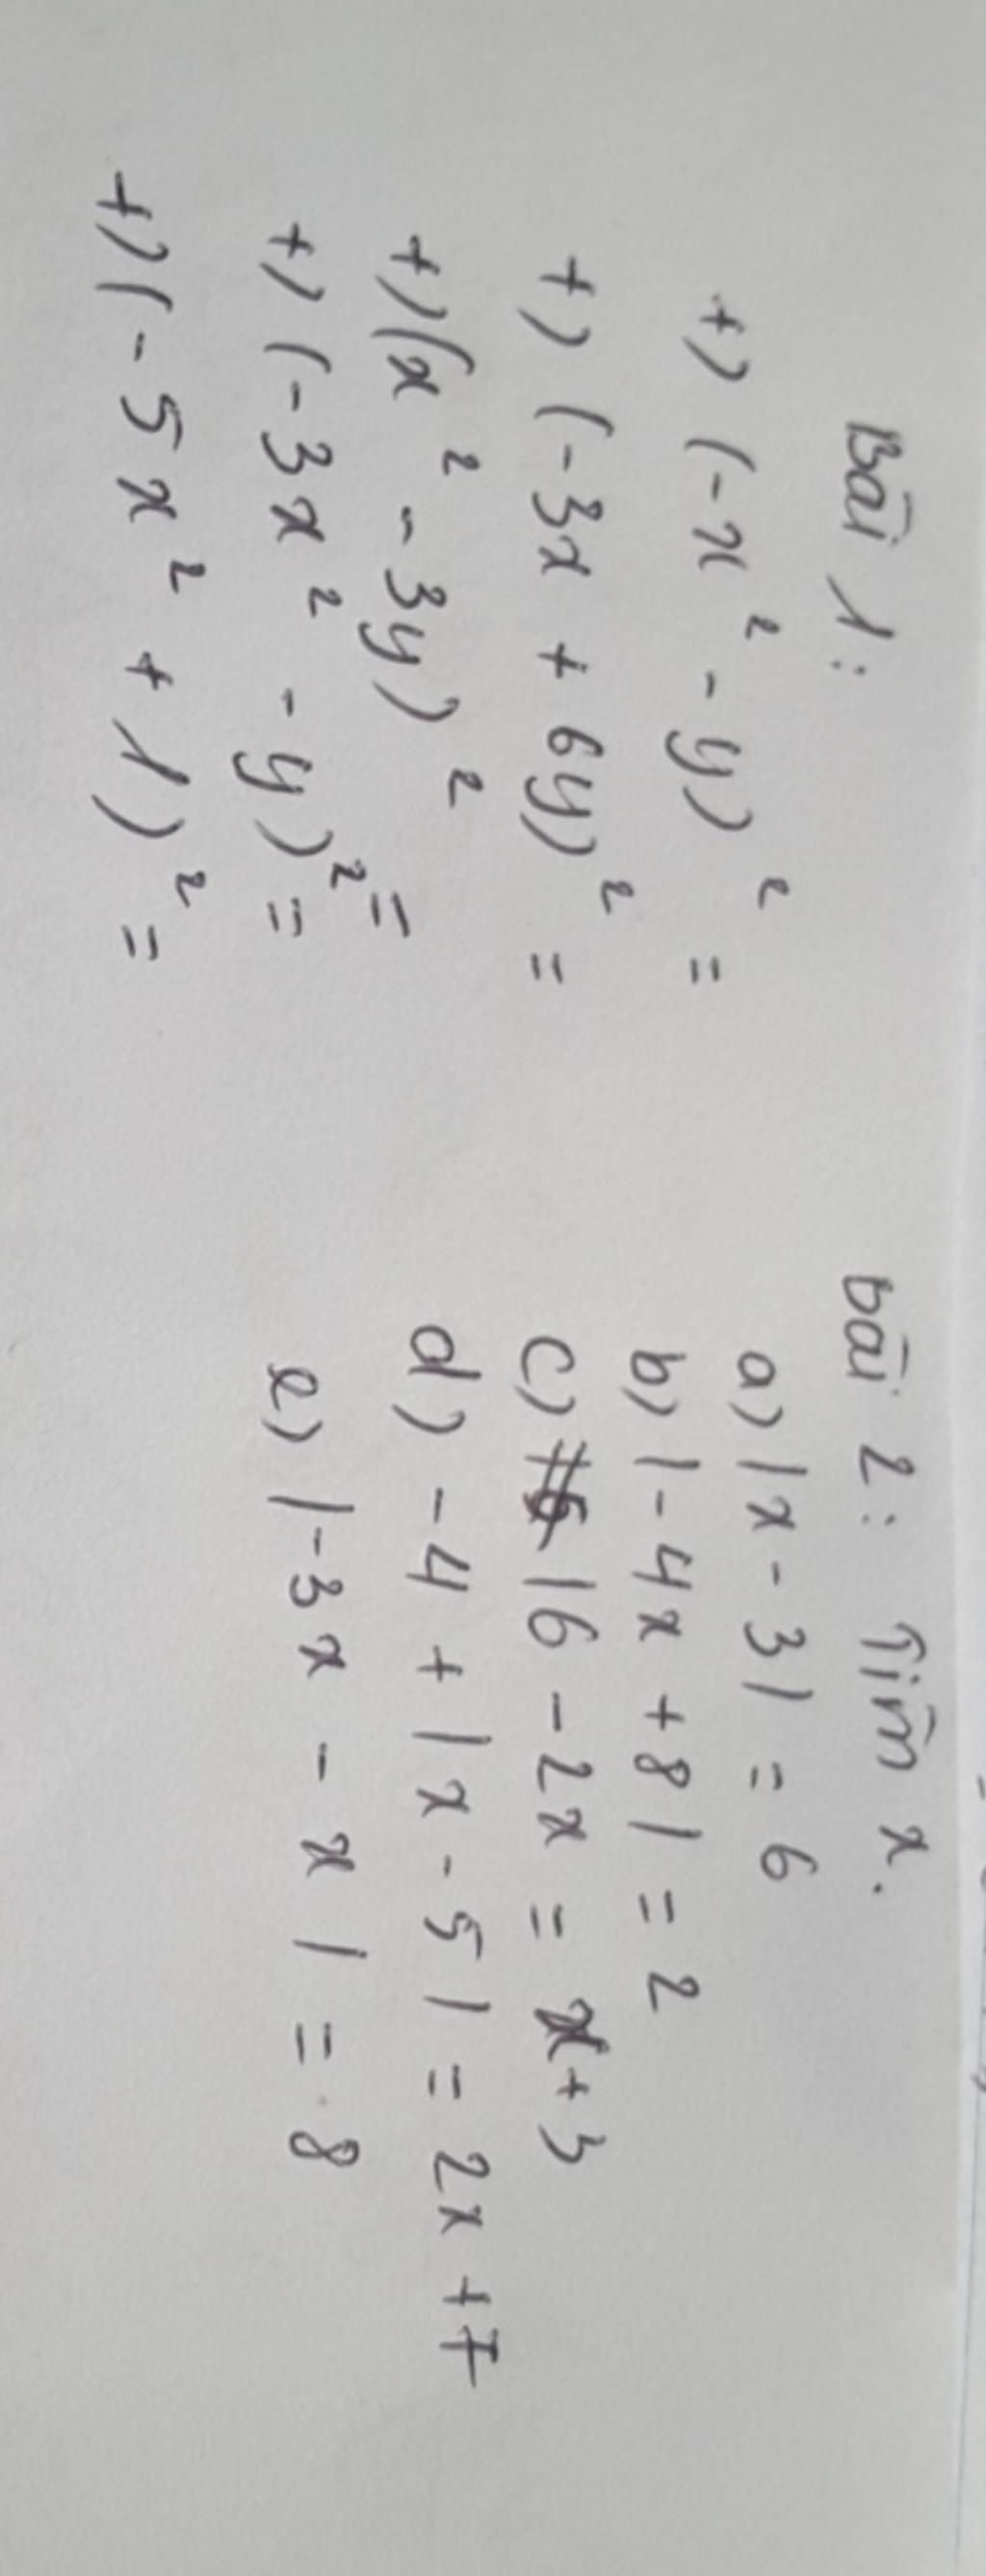 Bài 1:
+) (-x² - y)² =
+) (-3x + 6y)² =
+) (x² - 3y)² =
+) (-3x² - y)² =
+) (-5x² + 1)² =
bài 2: Tìm x.
a) |x - 3| = 6
b) |-4x + 8| = 2
c) 16 - 2x = x + 3
d) -4 + |x - 5| = 2x + 7
e) |-3x - x| = 8